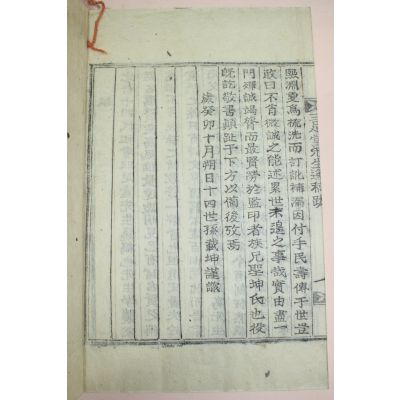 三足堂先生遺稿跋
熙淵更爲梳洗而訂訛補漏因付手民壽傳于世豈
敢曰不肖微誠之能述累世未遑之事哉實由盡一
門殫誠竭膂而最賢勞於監印者族兄聖坤氏也役
旣訖敬書顚趾于下方以備後攷焉
歲癸卯十月朔日十四世孫載坤謹識